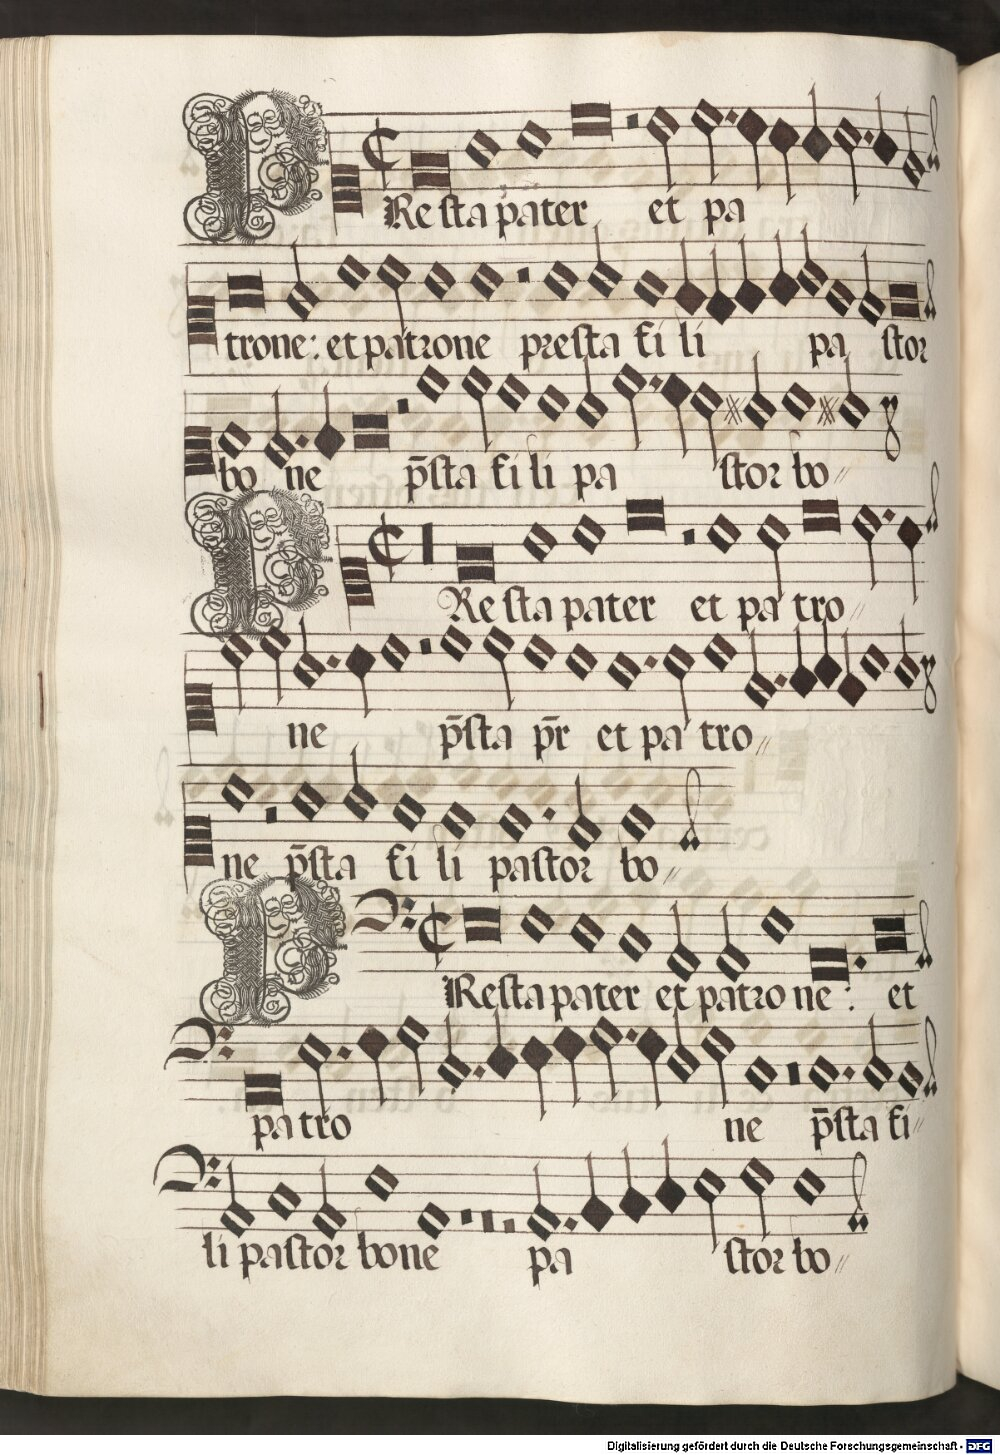 PResta pater et pa
trone: et patrone presta fili pastor
bo ne p̄sta fili pastor bo //
PResta pater et patro //
ne p̄sta p̄r et patro //
ne p̄sta fili pastor bo //
PResta pater et patrone: et
patro ne p̄sta fi //
li pastor bone pastor bo //
Digitalisierung gefördert durch die Deutsche Forschungsgemeinschaft - DFG